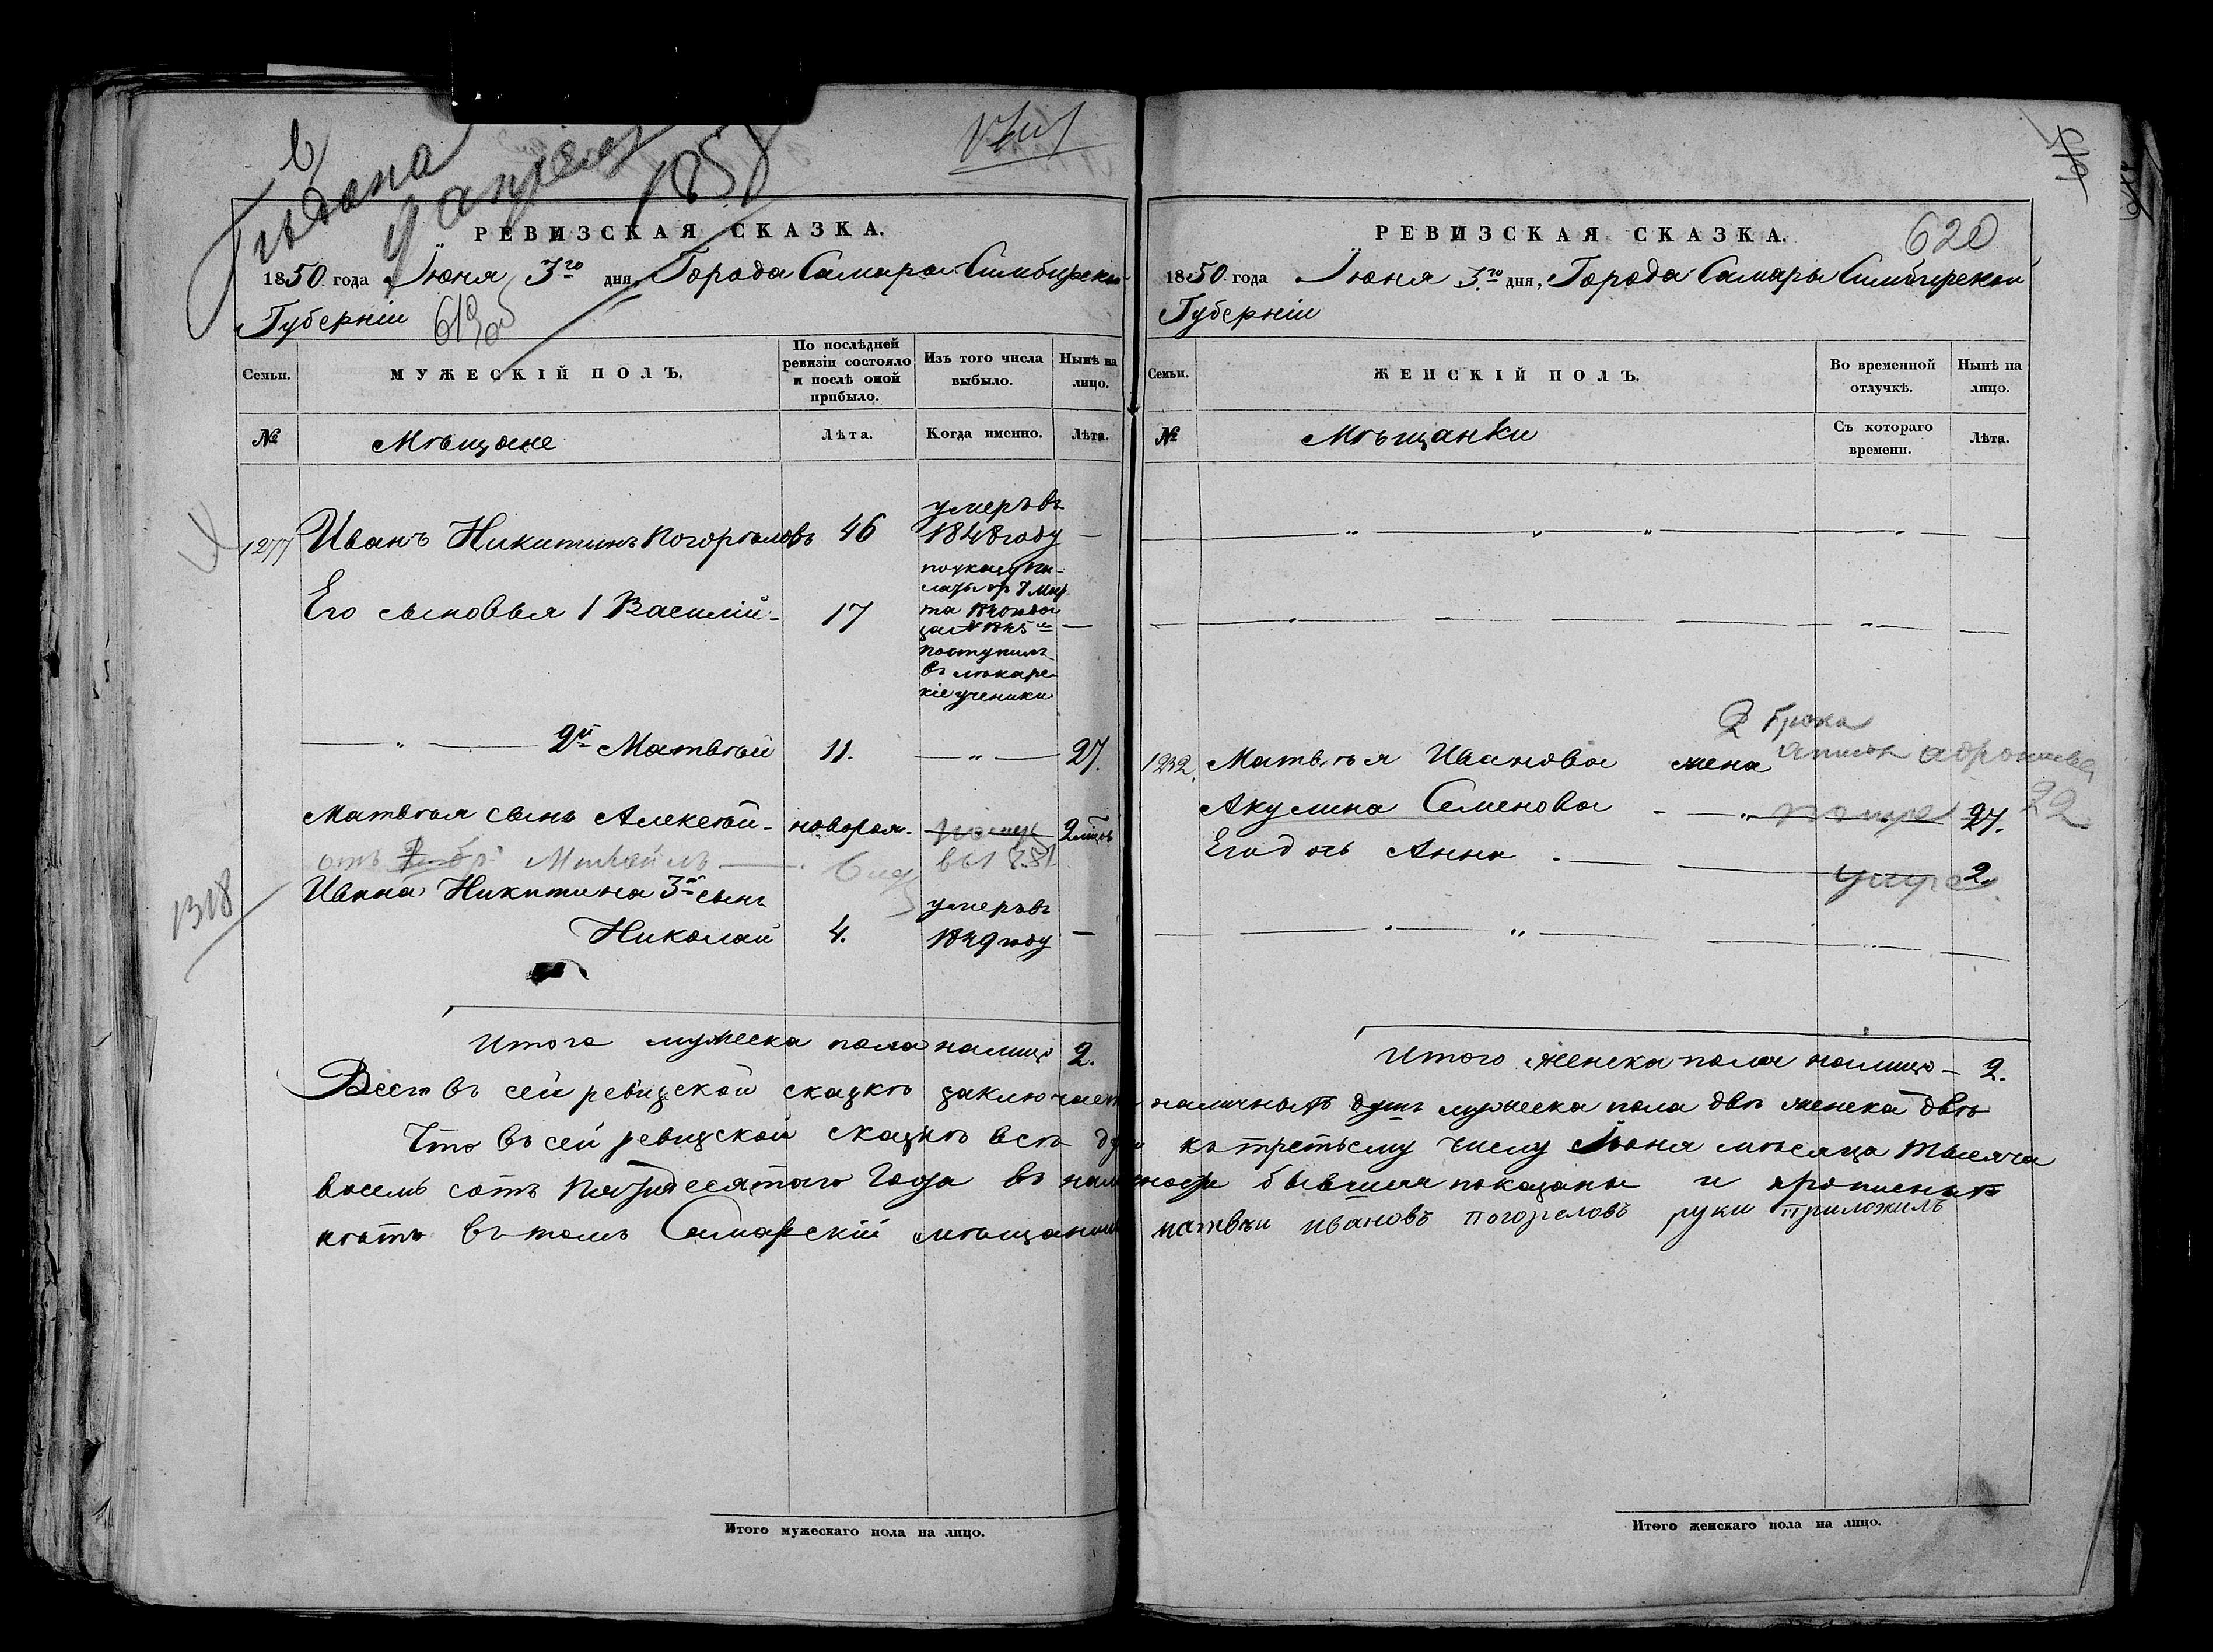 Подана
9 апреля
1858
РЕВИЗСКАЯ СКАЗКА.
1850 года Іюня 3го дня, Города Самары Симбирской
Губерніи
619 об
Семьи.
МУЖЕСКІЙ ПОЛЪ.
По послѣдней ревизіи состояло и послѣ оной прибыло.
Изъ того числа выбыло.
Нынѣ на лицо.
№
Мѣщане
Лѣта.
Когда именно.
Лѣта.
1277 Иванъ Никитинъ Погорѣловъ 46 умеръ въ 1848 году —
Его сыновья 1 Василій 17
та 1840 года
за № 1845м —
поступилъ
въ лѣкарс
кіе ученики
— „ — 2й Матвѣй 11. — „ — 27.
Матвѣя сынъ Алексѣй новорож. 2 мѣс
отъ 2 бр
Ивана Никитина 3й сынъ
Николай 4. умеръ въ 1849 году —
1318
Итого мужеска пола налицо 2.
РЕВИЗСКАЯ СКАЗКА.
620
1850 года Іюня 3го дня, Города Самары Симбирской
Губерніи
Семьи.
ЖЕНСКІЙ ПОЛЪ.
Во временной отлучкѣ.
Нынѣ на лицо.
№
Мѣщанки
Съ котораго времени.
Лѣта.
2 брака
1232. Матвѣя Иванова жена
Акулина Семенова — „ 27. 22
Его дочь Анна — 2.
Итого женска пола налицо — 2.
Всего въ сей ревизской сказкѣ заключается наличныхъ душъ мужеска пола двѣ женска двѣ
Что въ сей ревизской сказкѣ всѣ души къ третьему числу Іюня мѣсяца тысяча
восемь сотъ пятьдесятаго года въ наличности бывшия показаны и прописныхъ
нѣтъ въ томъ Самарскій мѣщанинъ матвеи ивановъ погореловъ руки приложилъ
Итого мужескаго пола на лицо.
Итого женскаго пола на лицо.